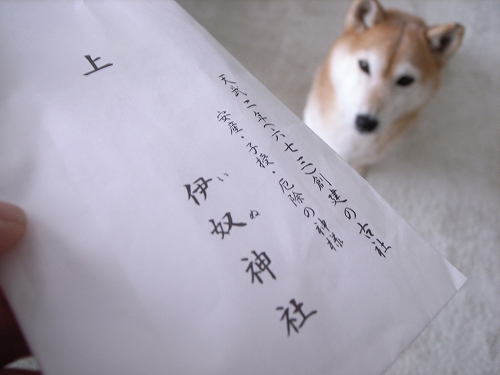 上
天武二年(六七三)創建の古社
安産・子授・厄除の神様
伊奴神社
いぬ